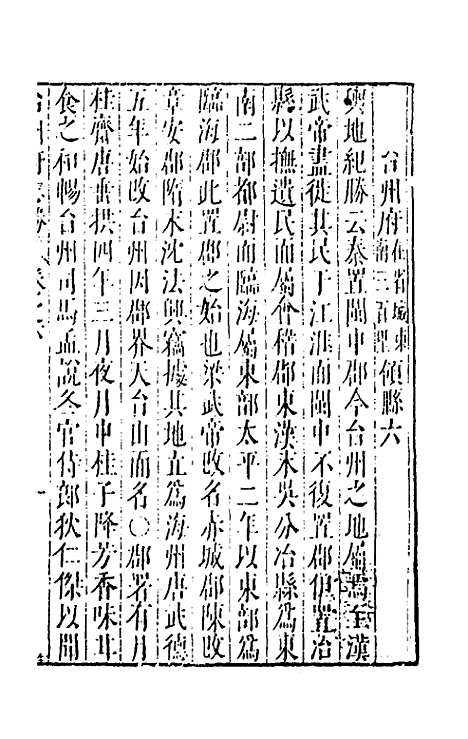 台州府在省城東南三百里領縣六
輿地紀勝云秦置閩中郡今台州之地屬焉至漢
武帝盡徙其民于江淮而閩中不復置郡俱置冶
縣以撫遺民而屬會稽郡東漢末吳分冶縣爲東
南二部都尉而臨海屬東部太平二年以東部爲
臨海郡此置郡之始也梁武帝改名赤城郡陳改
章安郡隋末沈法興竊據其地立爲海州唐武德
五年始改台州因郡界天台山而名〇郡署有月
桂齋唐垂拱四年三月夜月中桂子降芳香味辛
食之和暢台州司馬孟詵冬官侍郎狄仁傑以聞
台州府 卷之六 一